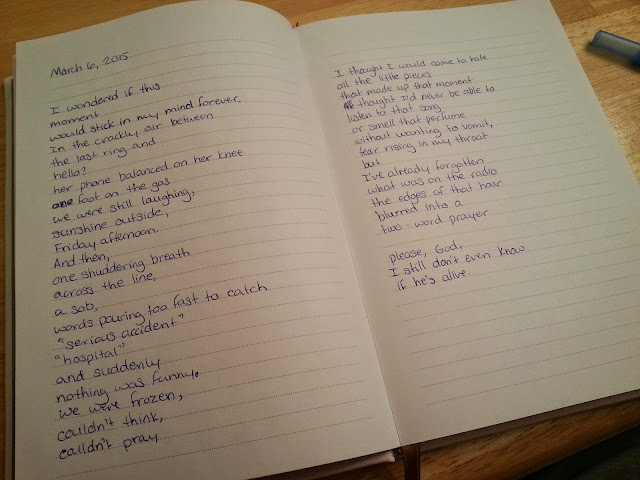 March 6, 2015
I wondered if this
moment
would stick in my mind forever.
In the crackly air between
the last ring and
hello?
her phone balanced on her knee
one foot on the gas
we were still laughing,
sunshine outside,
Friday afternoon.
And then,
one shuddering breath
across the line,
a sob,
words pouring too fast to catch
"serious accident"
"hospital"
and suddenly
nothing was funny.
We were frozen,
couldn't think,
couldn't pray
I thought I would come to hate
all the little pieces
that made up that moment
thought I'd never be able to
listen to that song
or smell that perfume
without wanting to vomit,
fear rising in my throat
but
I've already forgotten
what was on the radio
the edges of that hour
blurred into a
two-word prayer
please, God,
I still don't even know
if he's alive.